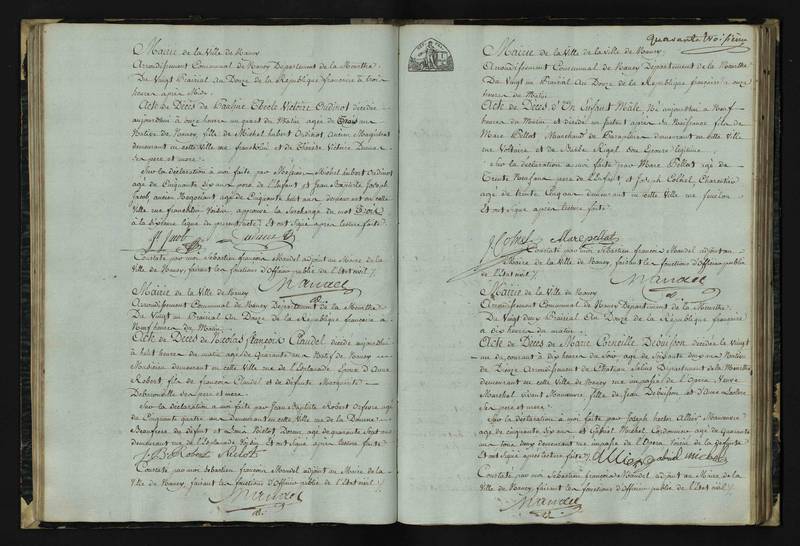 Mairie de la Ville de Nancy
Arrondissement Communal de Nancy Département de la Meurthe.
Du Vingt Prairial An Douze de la République française à trois
heures après Midi.
Acte de Décès de Pauline Nicole Victoire Oudinot décédée
aujourdhui à onze heures un quart du Matin agée de trois ans
Native de Nancy, fille de Michel hubert Oudinot Ancien Magistrat
demeurant en cette Ville rue et de Thérèse Victoire
ses pere et mere.
Sur la déclaration à moi faite par Messieurs Michel hubert Oudinot
agé de Cinquante dix ans pere de l'Enfant et Jean Baptiste Joseph
Jacob, ancien Négociant agé de Cinquante huit ans demeurant en cette
Ville rue franklin Voisin approuvé la Surcharge du mot trois
à la sixième ligne du présent acte. Et ont signé après lecture faite
Jacob Oudinot
Constaté par moi Sébastien françois Mandel adjoint au Maire de la
Ville de Nancy, faisant les fonctions d'Officier public de l'Etat civil
Mandel
Mairie de la Ville de Nancy
Arrondissement Communal de Nancy Département de la Meurthe
Du Vingt un Prairial An Douze de la République française à
Neuf heures du Matin.
Acte de Décès de Nicolas François Claudel décédé aujourdhui
à huit heures du matin agé de Quarante ans Natif de Nancy
demeurant en cette Ville rue de l'Esplanade Epoux d'Anne
Robert fils de françois Claudel et de défunte Marguerite
ses pere et mere.
Sur la déclaration à moi faite par Jean Baptiste Robert Orfevre agé
de Cinquante quatre ans Demeurant en cette Ville rue de la Douane
Beaufrere du défunt et Louis Nicolot Doreur agé de quarante Sept ans
demeurant rue de l'Esplanade Voisin Et ont signé après lecture faite
J. B. Robert Nicolot
Constaté par moi Sébastien françois Mandel adjoint au Maire de la
Ville de Nancy, faisant les fonctions d'Officier public de l'Etat civil
Mandel
Quarante troisième
Mairie de la Ville de la Ville de Nancy.
Arrondissement Communal de Nancy Département de la Meurthe
Du Vingt un Prairial An Douze de la République française à onze
heures du Matin
Acte de Décès d'Un Enfant Mâle Né aujourdhui à Neuf
heures du Matin et décédé un instant après sa Naissance fils de
Marc Pellot Marchand de Parapluie demeurant en cette Ville
rue Voltaire et de Barbe Rigel son Epouse légitime
Sur la déclaration à moi faite par Marc Pellot agé de
Trente Neuf ans pere de l'Enfant et Joseph Charentier
agé de trente Cinq ans demeurant en cette Ville rue
Et ont signé après lecture faite
Marc pellot
Constaté par moi Sébastien françois Mandel adjoint au
Maire de la Ville de Nancy, faisant les fonctions d'Officier public
de l'Etat civil
Mandel
Mairie de la Ville de Nancy
Arrondissement Communal de Nancy Département de la Meurthe
Du Vingt deux Prairial An Douze de la République française
à dix heures du matin
Acte de Décès de Marie Corneille Debuisson décédée le Vingt
un du courant à dix heures du Soir agée de Soixante douze ans Native
de Arrondissement de Chateau Salins Département de la Meurthe
demeurant en cette Ville de Nancy rue impasse de l'Opera Veuve
Manoeuvre fille de Jean Debuisson et d'Anne
ses pere et mere.
Sur la déclaration à moi faite par Joseph Allier Manoeuvre
agé de cinquante six ans et Gabriel Michel Cordonnier agé de Quarante
un tous deux demeurant rue impasse de l'Opera Voisin de la défunte
Et ont signé après lecture faite Allier gabriel michel
Constaté par moi Sébastien françois Mandel adjoint au Maire de la
Ville de Nancy, faisant les fonctions d'Officier public de l'Etat civil
Mandel